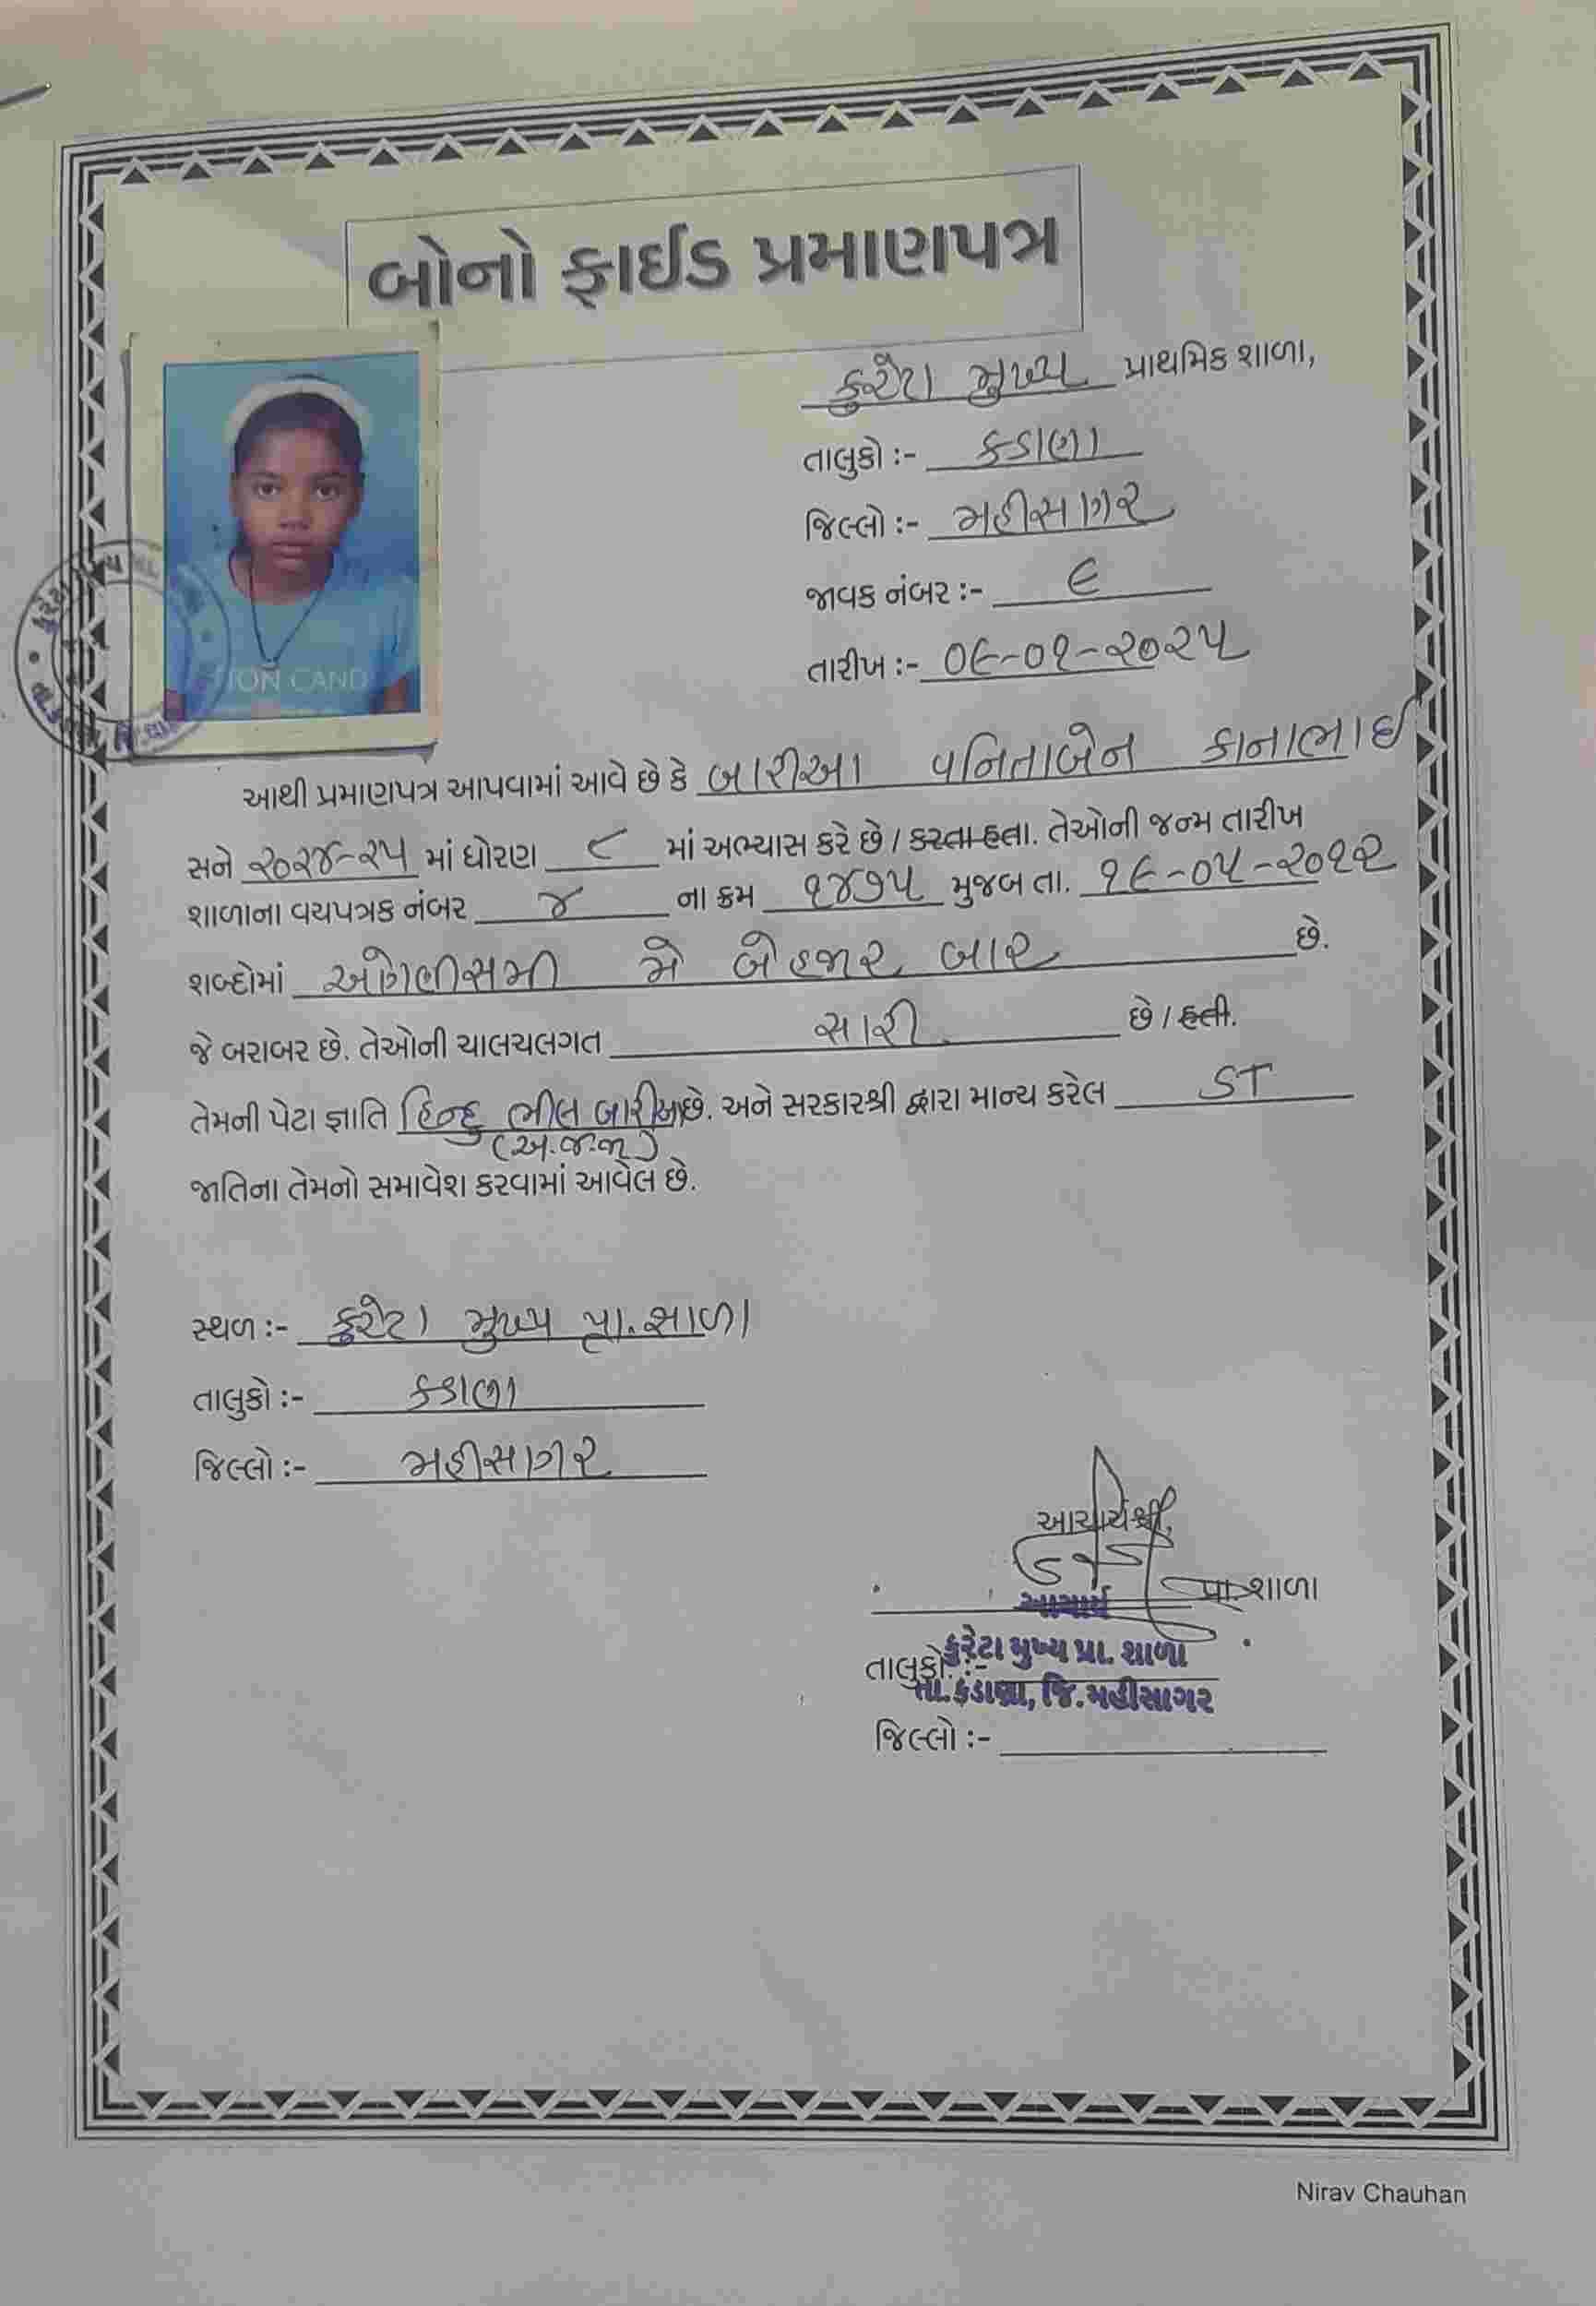 બોનો ફાઈડ પ્રમાણપત્ર
કુરેટા મુખ્ય પ્રાથમિક શાળા,
તાલુકો :- કડાણા
જિલ્લો :- મહીસાગર
જાવક નંબર :- ૯
તારીખ :- ૦૯-૦૧-૨૦૨૫
TON CAND
આથી પ્રમાણપત્ર આપવામાં આવે છે કે બારીઆ વનિતાબેન કાનાભાઈ
સને ૨૦૨૪-૨૫ માં ધોરણ ૮ માં અભ્યાસ કરે છે / કરતા હતા. તેઓની જન્મ તારીખ
શાળાના વયપત્રક નંબર ૪ ના ક્રમ ૧૪૭૫ મુજબ તા. ૧૯-૦૫-૨૦૧૨
શબ્દોમાં ઓગણીસમી મે બેહજાર બાર છે.
જે બરાબર છે. તેઓની ચાલચલગત સારી છે / હતી.
તેમની પેટા જ્ઞાતિ હિન્દુ ભીલ બારીઆ છે. અને સરકારશ્રી દ્વારા માન્ય કરેલ ST
(અ.જ.જા)
જાતિના તેમનો સમાવેશ કરવામાં આવેલ છે.
સ્થળ :- કુરેટા મુખ્ય પ્રા. શાળા
તાલુકો :- કડાણા
જિલ્લો :- મહીસાગર
આચાર્યશ્રી,
આચાર્ય પ્રા. શાળા
કુરેટા મુખ્ય પ્રા. શાળા
તાલુકો :-
તા. કડાણા, જિ. મહીસાગર
જિલ્લો :-
Nirav Chauhan